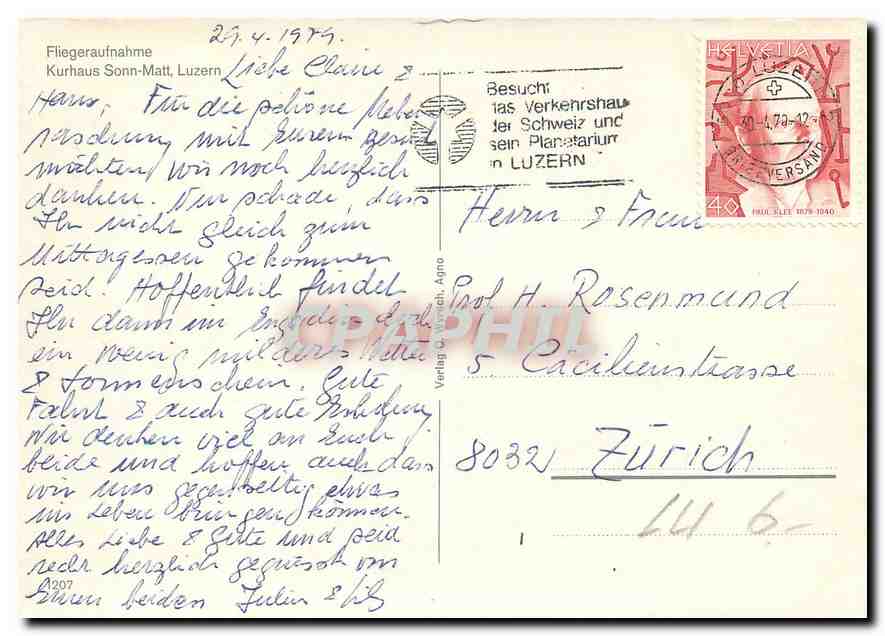 29.4.1979.
Fliegeraufnahme
Kurhaus Sonn-Matt, Luzern
Liebe Claire &
Hans, Für die schöne Ueber
raschung mit Eurem Besuch
möchten wir noch herzlich
danken. Nur schade, dass
Ihr nicht gleich zum
Mittagessen gekommen
seid. Hoffentlich findet
Ihr dann im Engadin doch
ein wenig milderes Wetter
& Sonnenschein. Gute
Fahrt & auch gute Erholung
Wir denken viel an Euch
beide und hoffen auch dass
wir uns gegenseitig etwas
ins Leben bringen können.
Alles Liebe & Gute und seid
recht herzlich gegrüsst von
Euren beiden
1207
Verlag O. Wyrsch, Agno
Besucht
das Verkehrshau
der Schweiz und
sein Planetarium
in LUZERN
HELVETIA
LUZERN
30-4.79-12
BRIEFVERSAND
40
PAUL KLEE 1879-1940
Herrn & Frau
Prof. H. Rosenmund
5. Cäcilienstrasse
8032 Zürich
LU 6.-
CPAPHIL